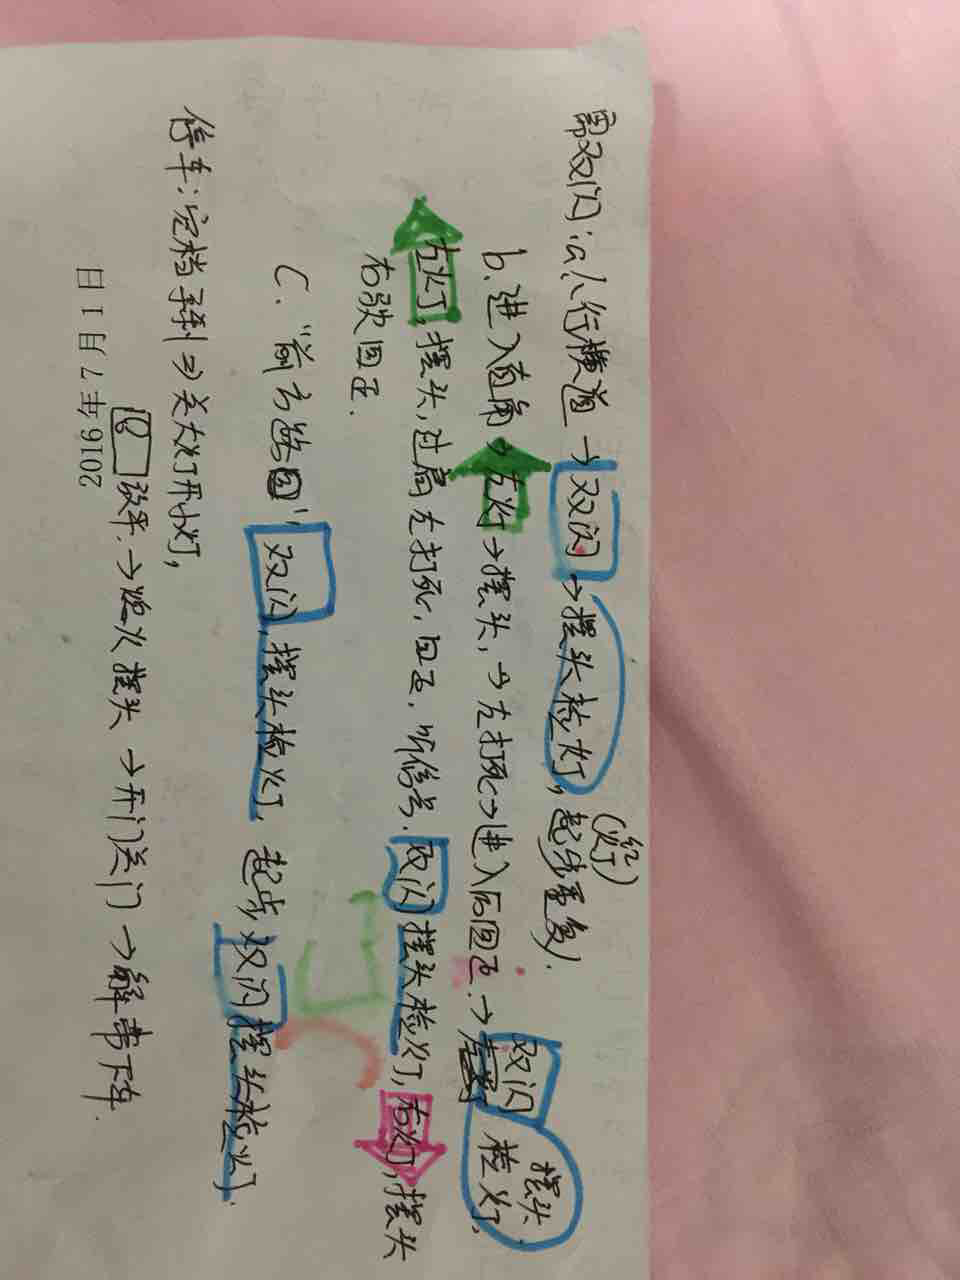 需双闪:a人行横道→双闪→摆头检灯,起步重复).
(红灯)
b.进入直角→左灯→摆头,→左打死→进入后回正.→双闪
摆头检灯,
左灯,摆头,过肩左打死,回正,听信号.双闪摆头检灯,右灯,摆头
右 回正.
C."前方 ",双闪,摆头检灯,起步,双闪摆头检灯).
停车:空档手刹⇒关大灯开小灯,
→熄火摆头→开门关门→解带下车.
2016年7月1日